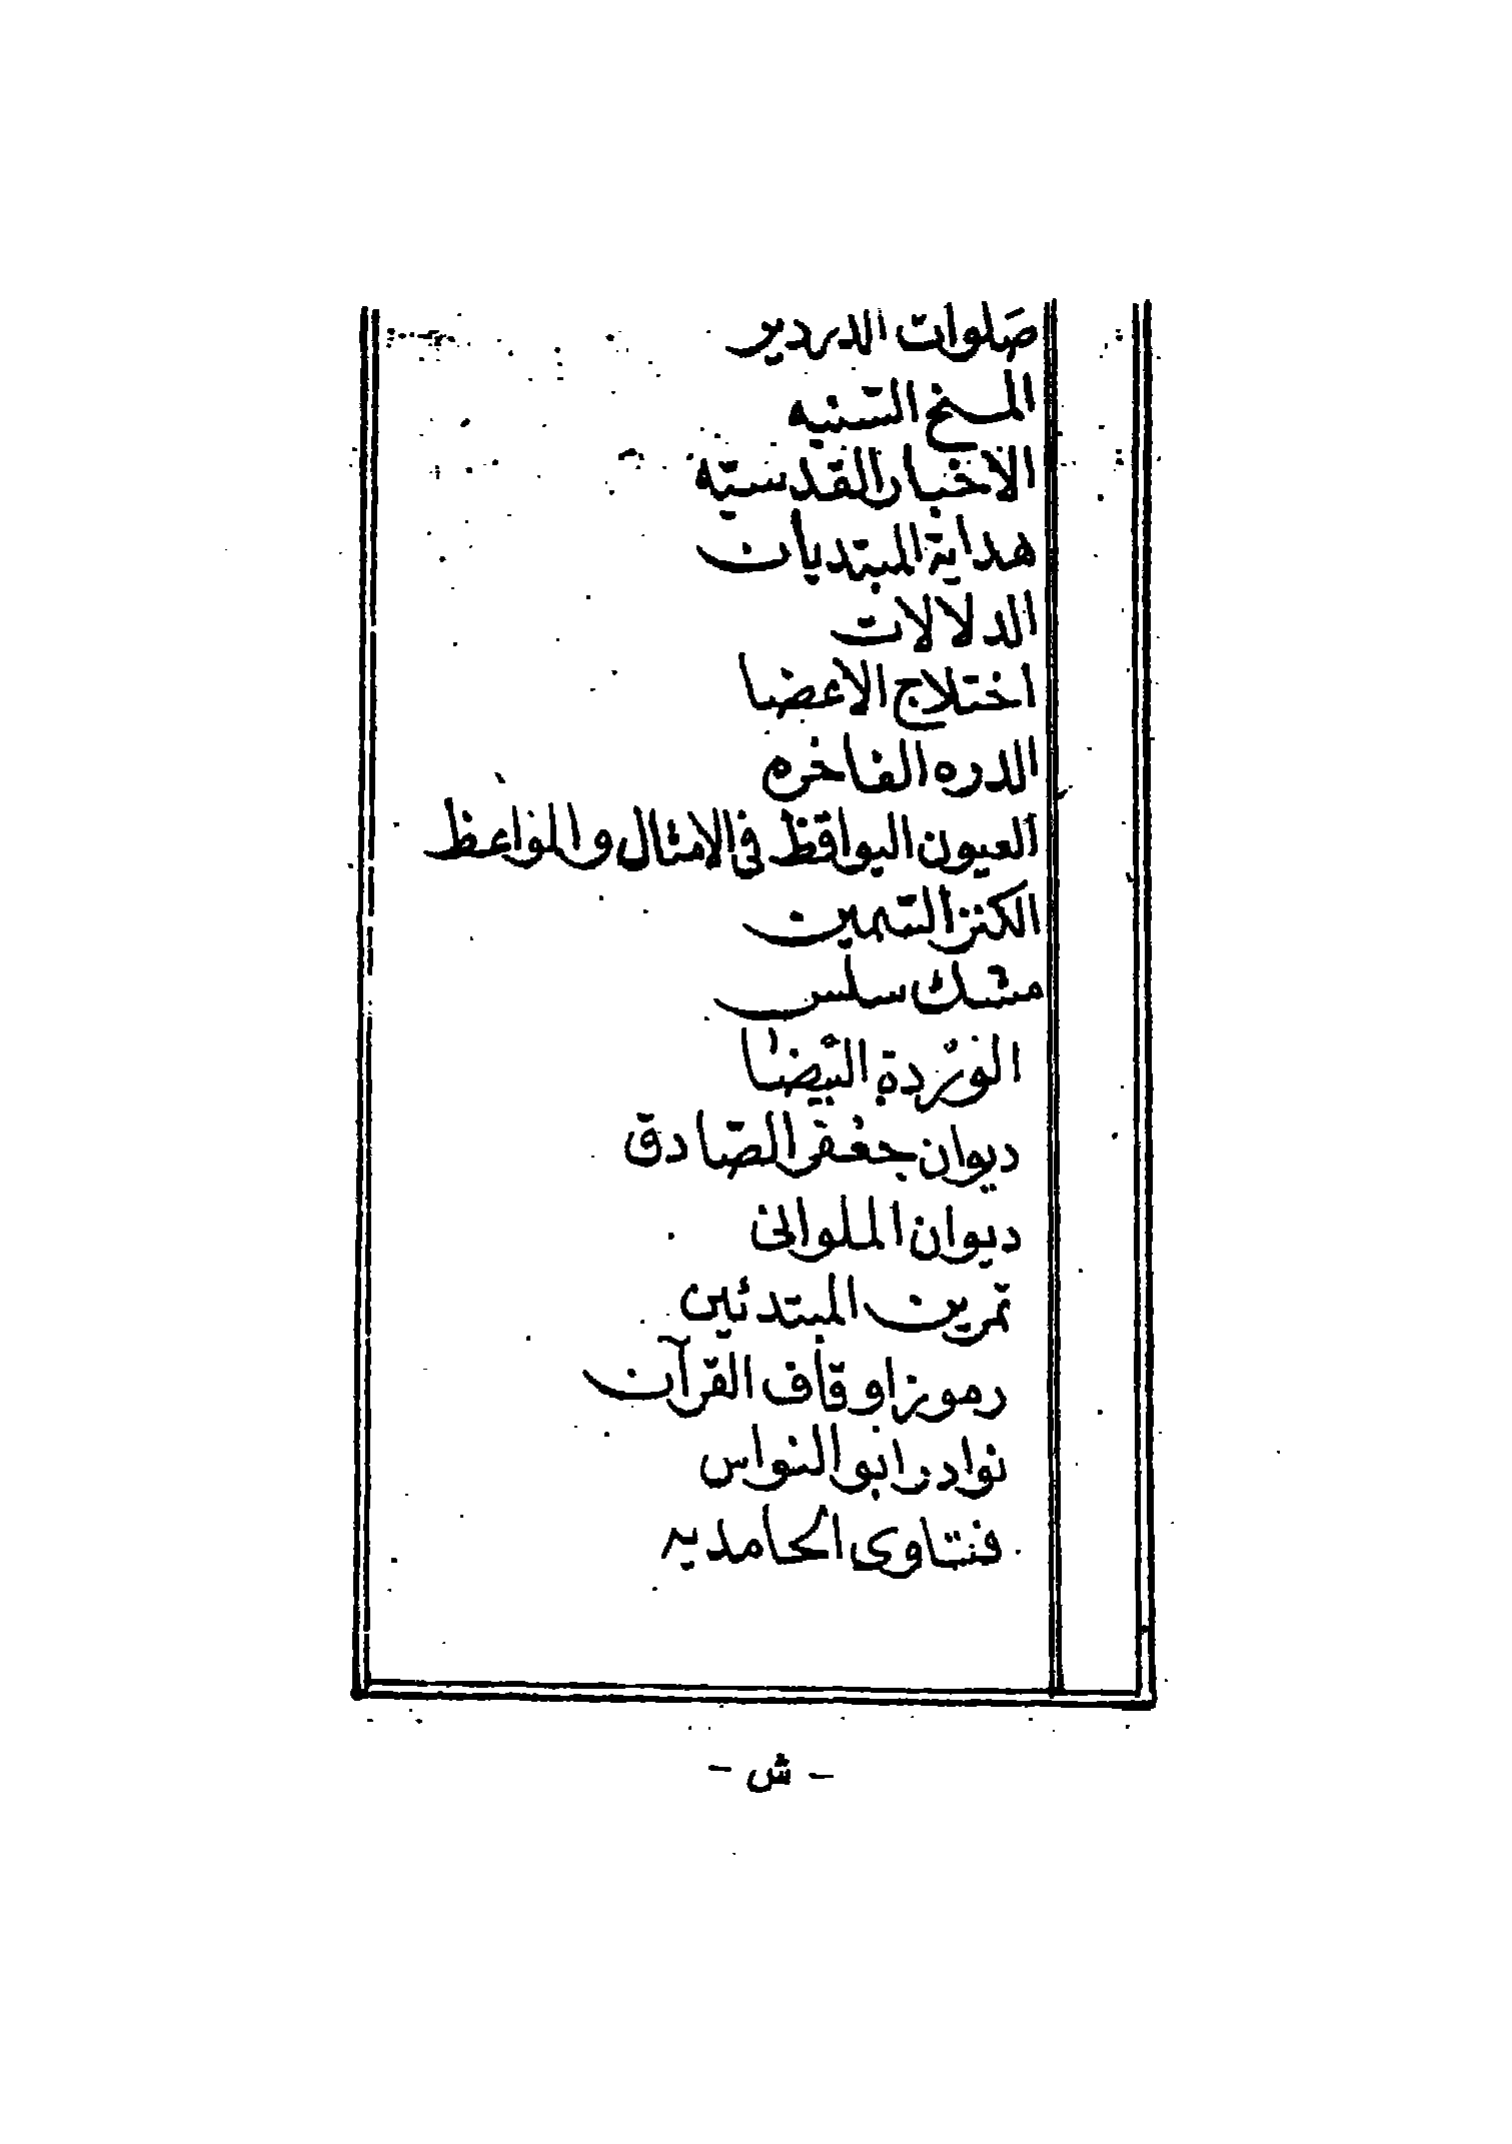 صلوات الدردير
المنح السنيه
الاخبار القدسيّه
هداية المبتديان
الدلالات
اختلاج الاعضا
الدره الفاخره
العيون اليواقظ في الامثال والمواعظ
الكنز الثمين
مشك سلس
الوردة البيضا
ديوان جعفر الصّادق
ديوان الملوانى
تمرين المبتدئين
رموز اوقاف القرآن
نوادر ابو النواس
فتاوى الحامديه
- ش -